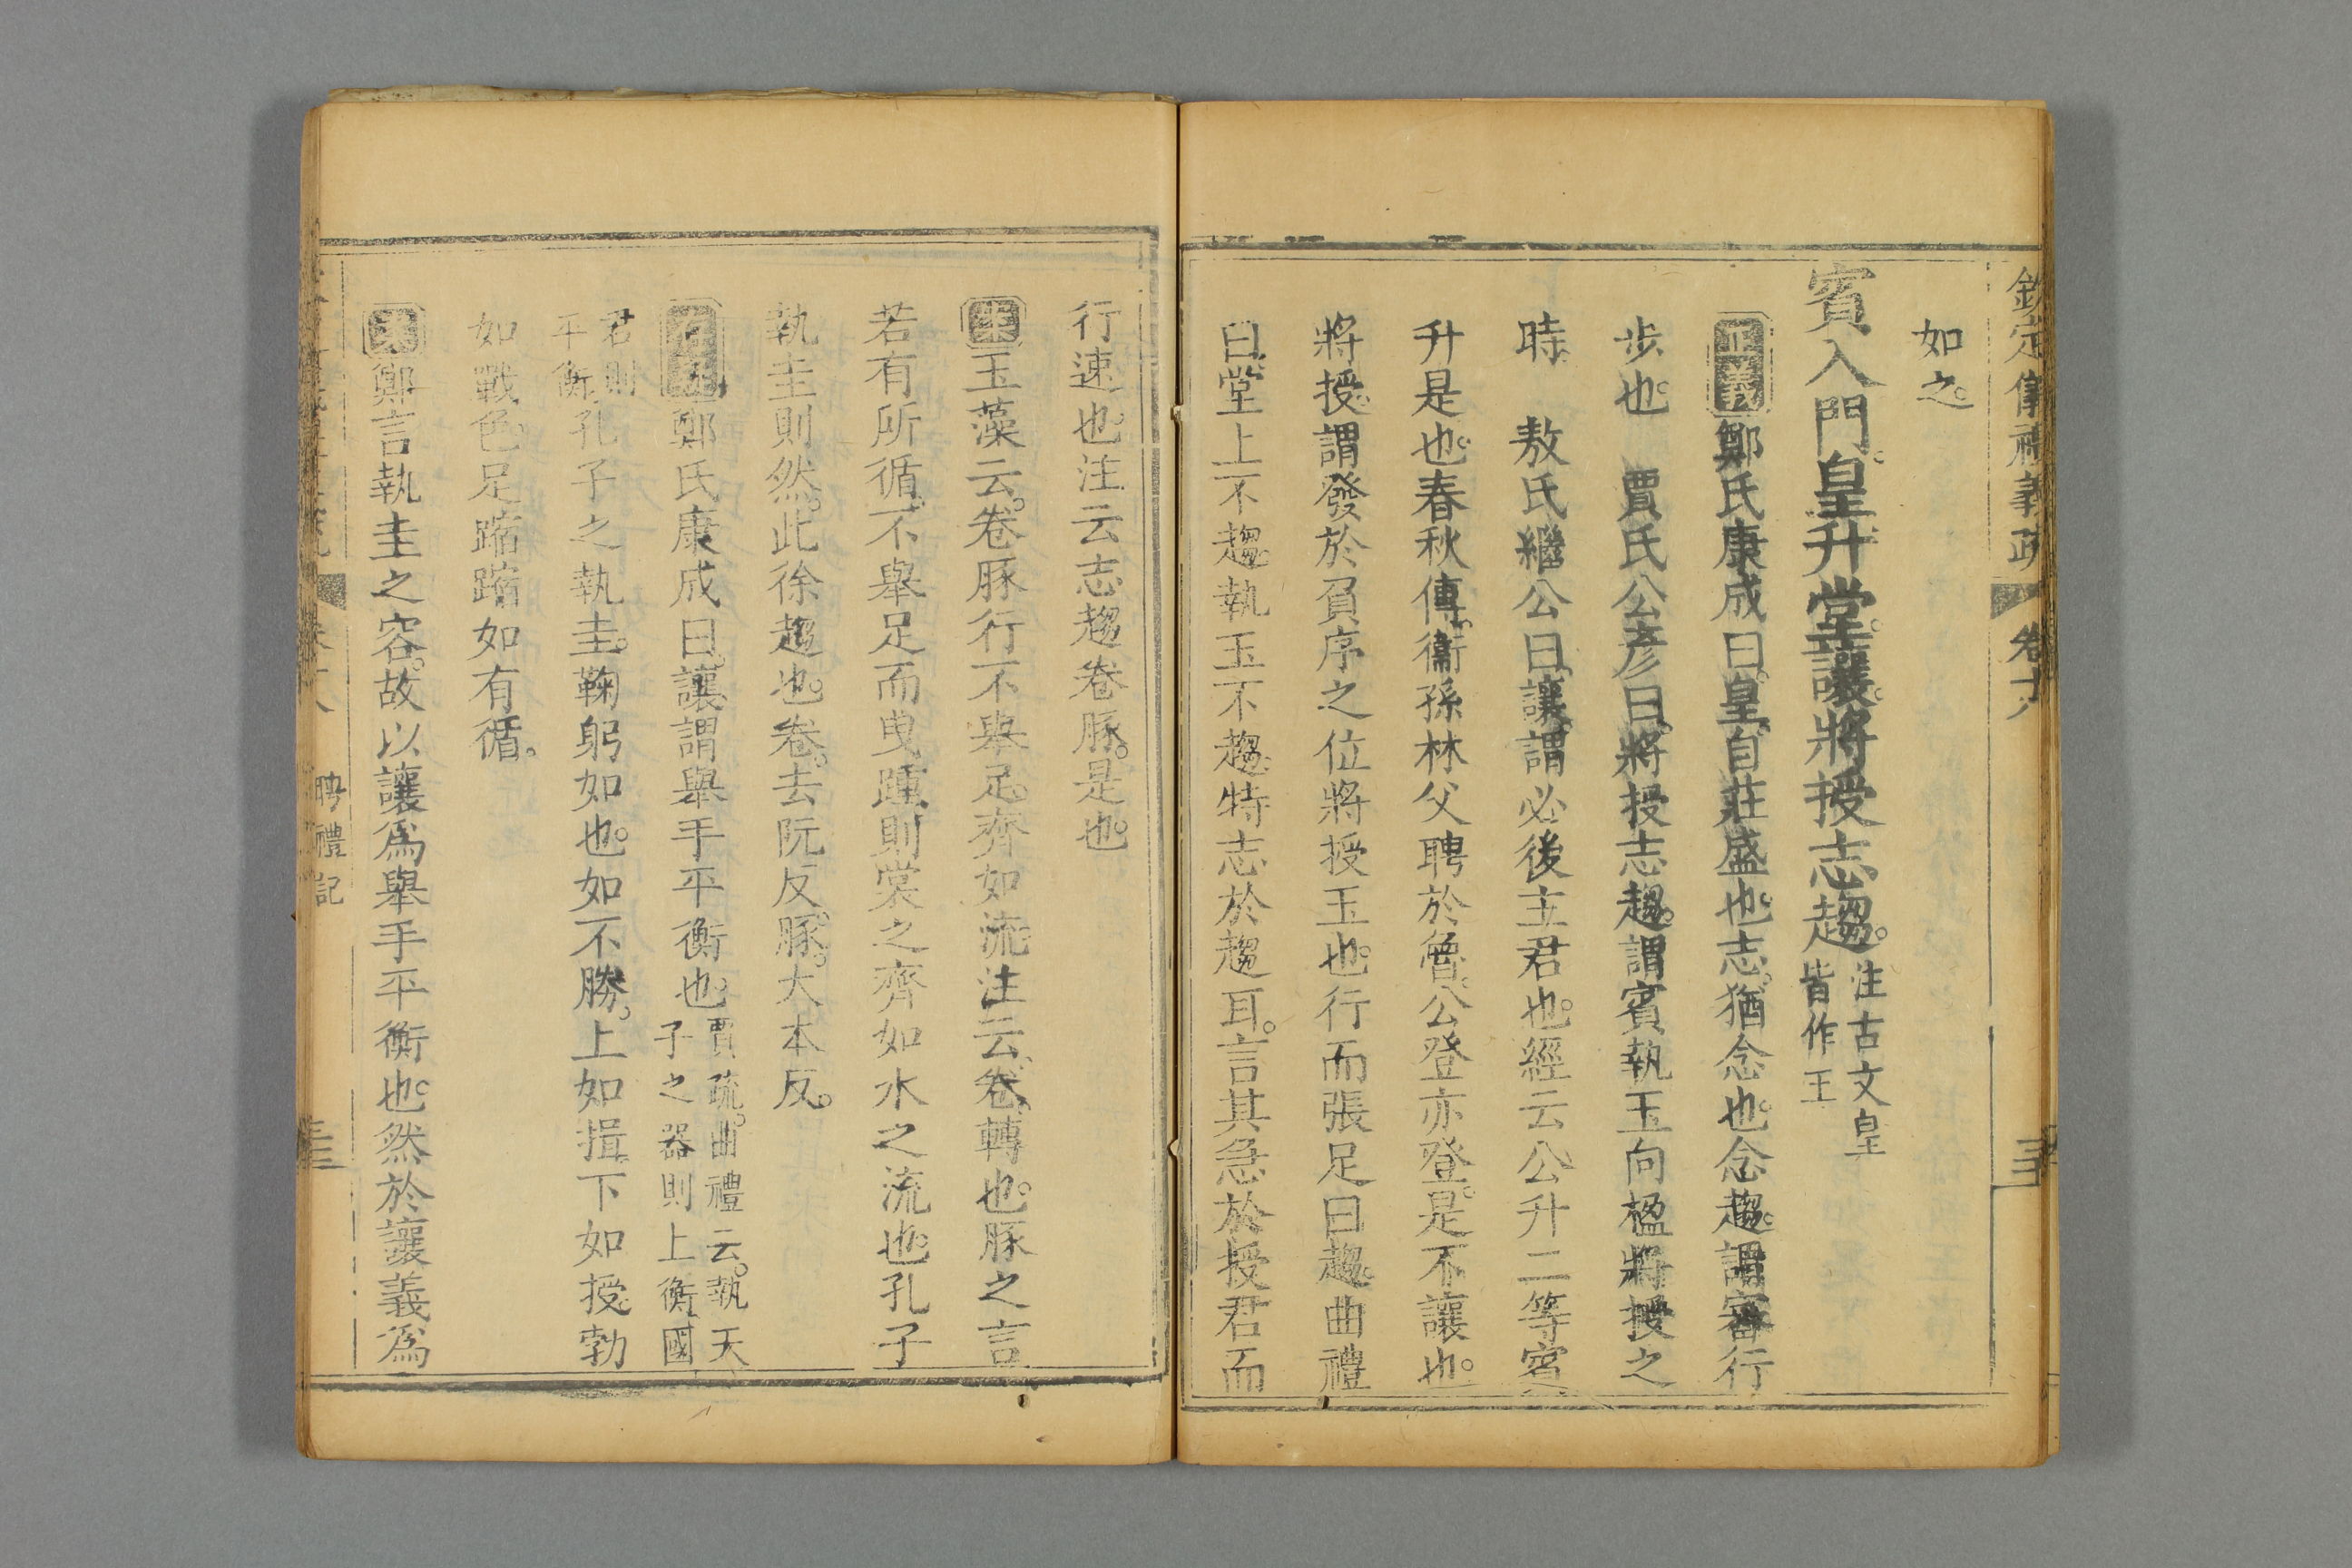 欽定儀禮義疏 卷十八
如之。
賓入門。皇升堂。讓。將授志趨。注古文皇皆作王
正義鄭氏康成曰。皇。自莊盛也。志。猶念也。念趨。謂審行
步也。 賈氏公彥曰。將授志趨。謂賓執玉向楹將授之
時。 敖氏繼公曰。讓。謂必後主君也。經云公升二等賓
升是也。春秋傳。衞孫林父聘於魯。公登亦登。是不讓也。
將授。謂發於負序之位將授玉也。行而張足曰趨。曲禮
曰。堂上不趨。執玉不趨。特志於趨耳。言其急於授君而
行速也。注云志趨卷豚。是也。
玉藻云。卷豚行不舉足。齊如流。注云。卷。轉也。豚之言
若有所循。不舉足而曳踵。則裳之齊如水之流也。孔子
執圭則然。此徐趨也。卷。去阮反。豚。大本反。
存疑鄭氏康成曰。讓謂舉手平衡也。賈疏。曲禮云。執天子之器則上衡。國
君則平衡。孔子之執圭。鞠躬如也。如不勝。上如揖。下如授。勃
如戰色。足蹜蹜如有循。
案鄭言執圭之容。故以讓爲舉手平衡也。然於讓義爲
卷十八 聘禮記